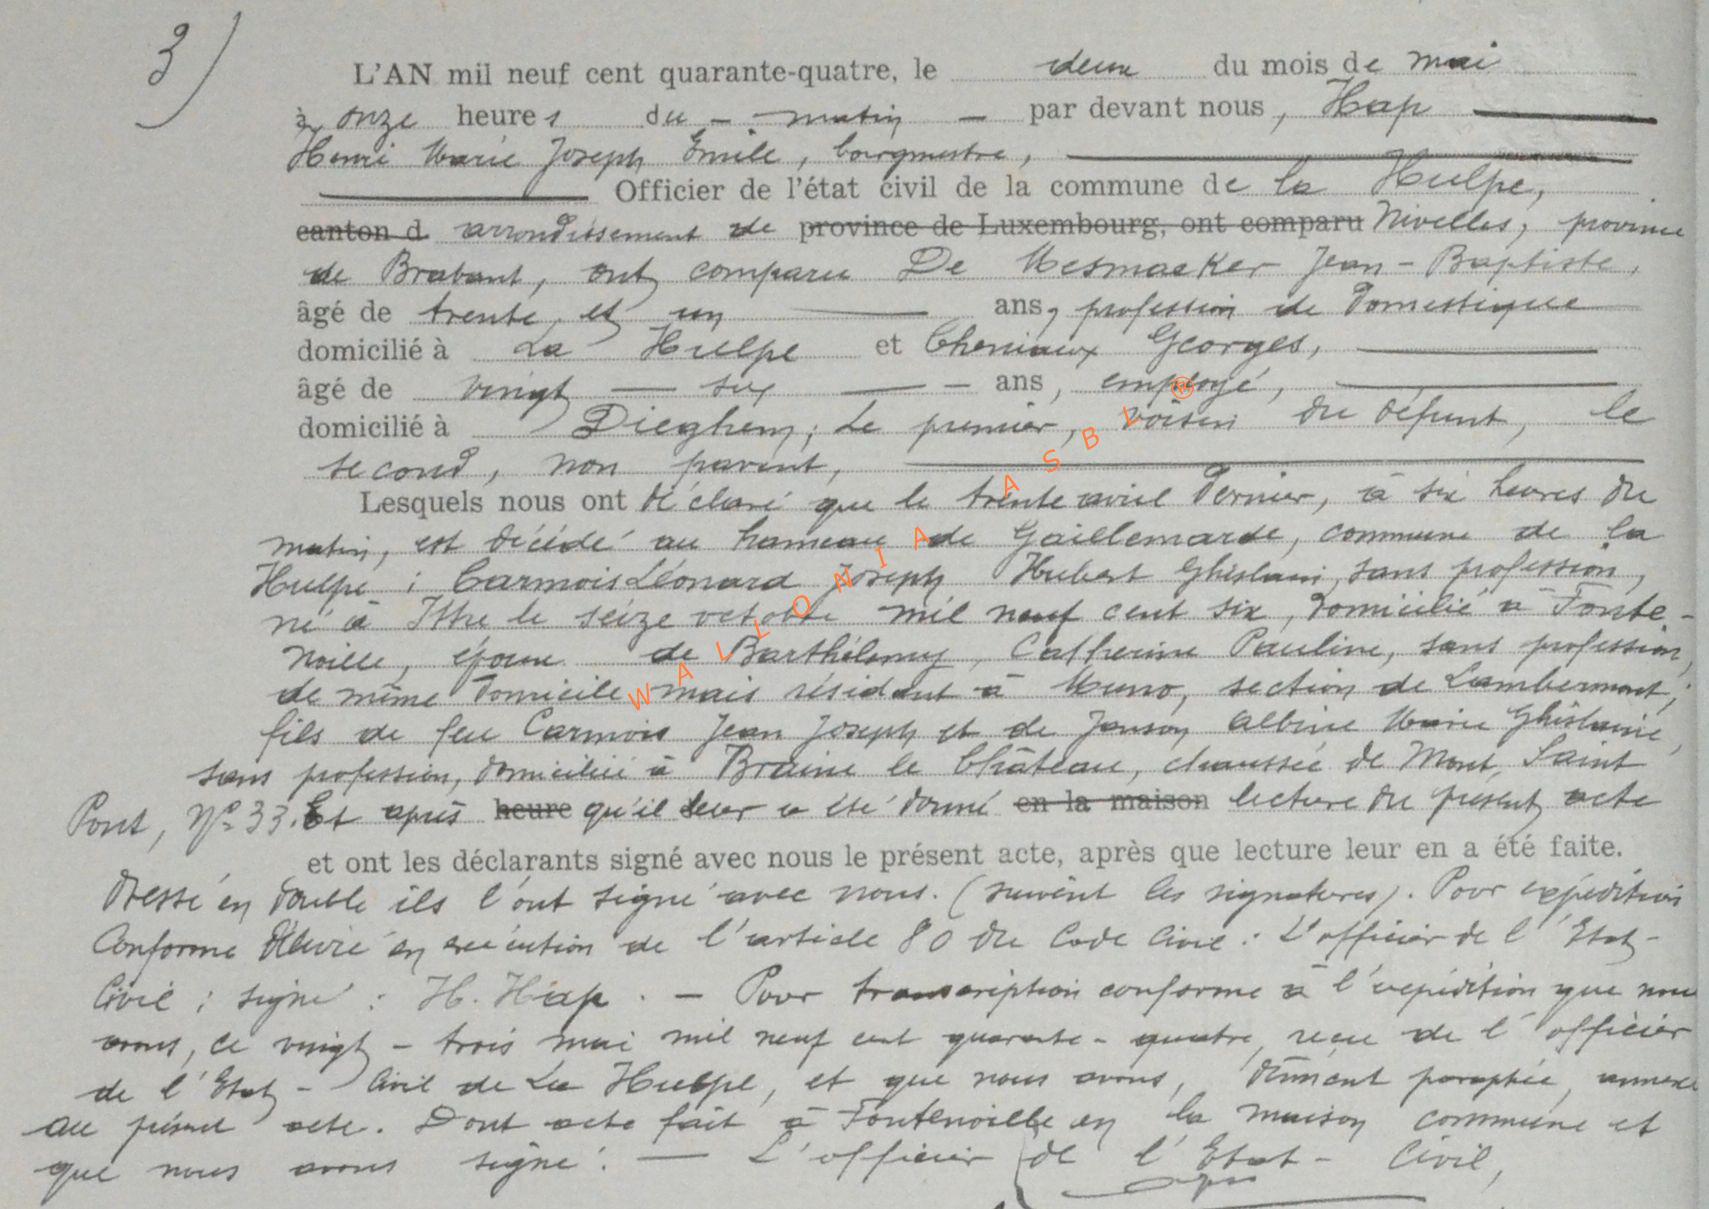 3)
L'AN mil neuf cent quarante-quatre, le deux du mois de mai
à onze heures du - matin - par devant nous, Hap
Henri Marie Joseph Emile, bourgmestre,
Officier de l'état civil de la commune de la Hulpe,
canton d arrondissement de province de Luxembourg, ont comparu Nivelles, province
de Brabant, ont comparu De Mesmaeker Jean-Baptiste,
âgé de trente et un ans, profession de domestique
domicilié à La Hulpe et Cheniaux Georges,
âgé de vingt - six - ans, employé,
domicilié à Dieghem; Le premier, voisin du défunt, le
second, non parent,
Lesquels nous ont déclaré que le trente avril dernier, à six heures du
matin, est décédé au hameau de Gaillemarde, commune de la
Hulpe : Carmois Léonard Joseph Hubert Ghislain, sans profession,
né à Ittre le seize octobre mil neuf cent six, domicilié à Fonte-
noille, époux de Barthélemy, Catherine Pauline, sans profession,
de même domicile mais résidant à Muno, section de Lambermont;
fils de feu Carmois Jean Joseph et de Janson Albine Marie Ghislaine,
sans profession, domiciliée à Braine le Château, chaussée de Mont Saint
Pont, N° 33. Et après heure qu'il leur a été donné en la maison lecture du présent acte
et ont les déclarants signé avec nous le présent acte, après que lecture leur en a été faite.
dressé en double ils l'ont signé avec nous. (suivent les signatures). Pour expédition
Conforme délivré en exécution de l'article 80 du Code Civil : L'officier de l'Etat-
Civil ; signé : H. Hap. - Pour transcription conforme à l'expédition que nous
avons, ce vingt - trois mai mil neuf cent quarante - quatre, reçue de l'officier
de l'Etat - Civil de La Hulpe, et que nous avons, dûment paraphée, annexée
au présent acte. Dont acte fait à Fontenoille en la maison commune et
que nous avons signé. - L'officier de l'Etat - Civil,
WALLONIA ASBL ®